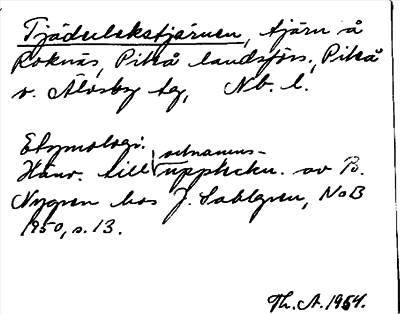 Tjäderlekstjärnen, tjärn å
Roknäs, Piteå landsförs., Piteå
o. Älvsby tg, Nb. l.
Etymologi.
Hänv. till ortnamns-
uppteckn. av B.
Nygren hos J. Sahlgren, NoB
1950, s. 13.
Th. A. 1954.